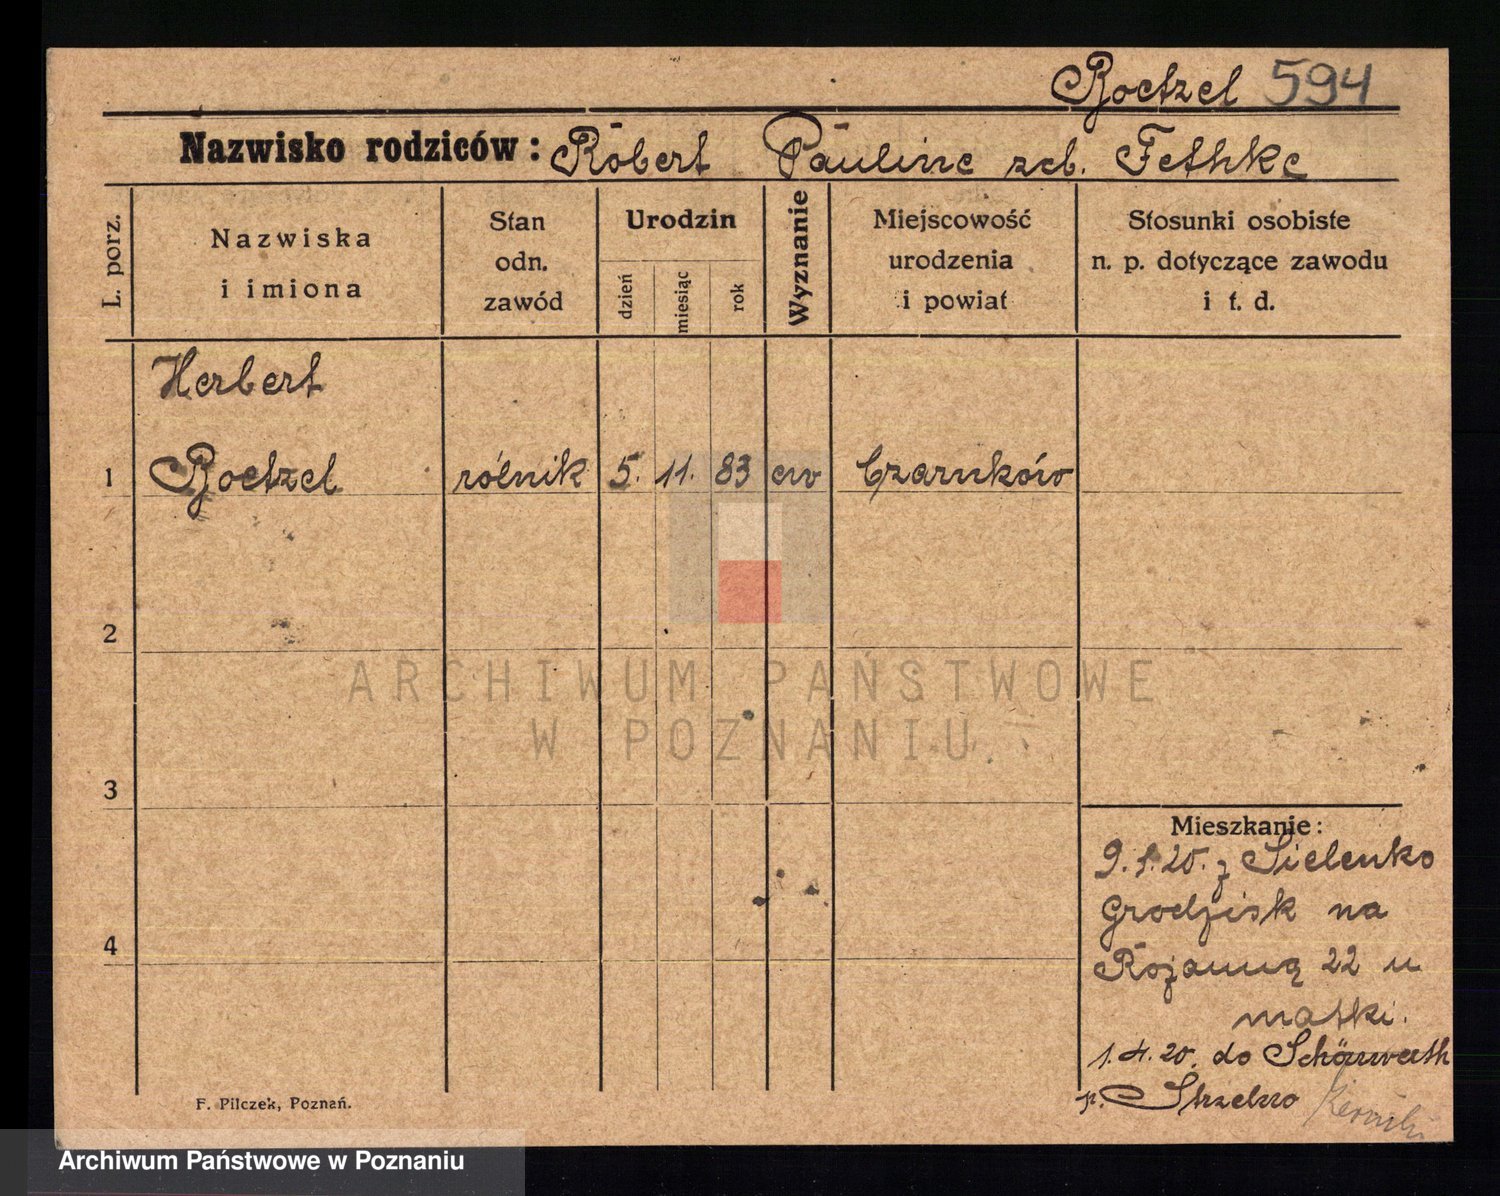 Boetzel 594
Nazwisko rodziców: Robert Pauline zeb. Fethke
L. porz.
Nazwiska
i imiona
Stan
odn.
zawód
Urodzin
dzień
miesiąc
rok
Wyznanie
Miejscowość
urodzenia
i powiat
Stosunki osobiste
n. p. dotyczące zawodu
i t. d.
Herbert
1 Boetzel rólnik 5. 11. 83 ew Czarnków
2
3
4
Mieszkanie:
9.1.20. z Sielenko
Grodzisk na
Różanną 22 u
matki.
1.4.20. do Schönwerth
p. Strzelno
F. Pilczek, Poznań.
ARCHIWUM PAŃSTWOWE
W POZNANIU
Archiwum Państwowe w Poznaniu